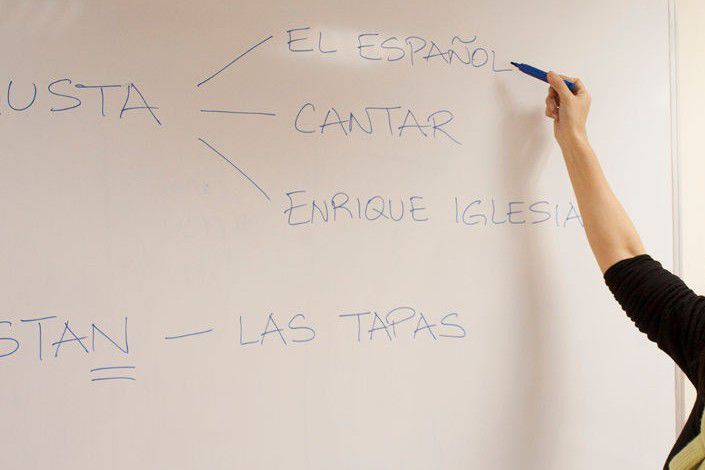 USTA
EL ESPAÑOL
CANTAR
ENRIQUE IGLESIA
STAN — LAS TAPAS